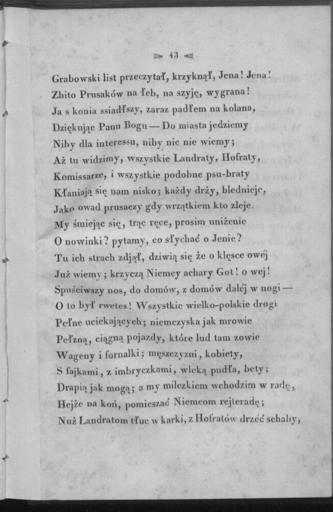 43
Grabowski list przeczytał, krzyknął, Jena! Jena!
Zbito Prusaków na łeb, na szyję, wygrana!
Ja s konia ssiadłszy, zaraz padłem na kolana,
Dziękując Panu Bogu — Do miasta jedziemy
Niby dla interessu, niby nic nie wiemy;
Aż tu widzimy, wszystkie Landraty, Hofraty,
Komissarze, i wszystkie podobne psu-braty
Kłaniają się nam nisko; każdy drży, blednieje,
Jako owad prusaczy gdy wrzątkiem kto zleje.
My śmiejąc się, trąc ręce, prosim uniżenie
O nowinki? pytamy, co słychać o Jenie?
Tu ich strach zdjął, dziwią się że o klęsce owéj
Już wiemy; krzyczą Niemcy achary Got! o wej!
Spuściwszy nos, do domów, z domów daléj w nogi —
O to był rwetes! Wszystkie wielko-polskie drogi
Pełne uciekających; niemczyska jak mrowie
Pełzną, ciągną pojazdy, które lud tam zowie
Wageny i fornalki; męszczyzni, kobiety,
S fajkami, z imbryczkami, wleką pudła, bety;
Drapią jak mogą; a my milczkiem wchodzim w radę,
Hejże na koń, pomieszać Niemcom rejteradę;
Nuż Landratom tłuc w karki, z Hofratów drzéć schaby,